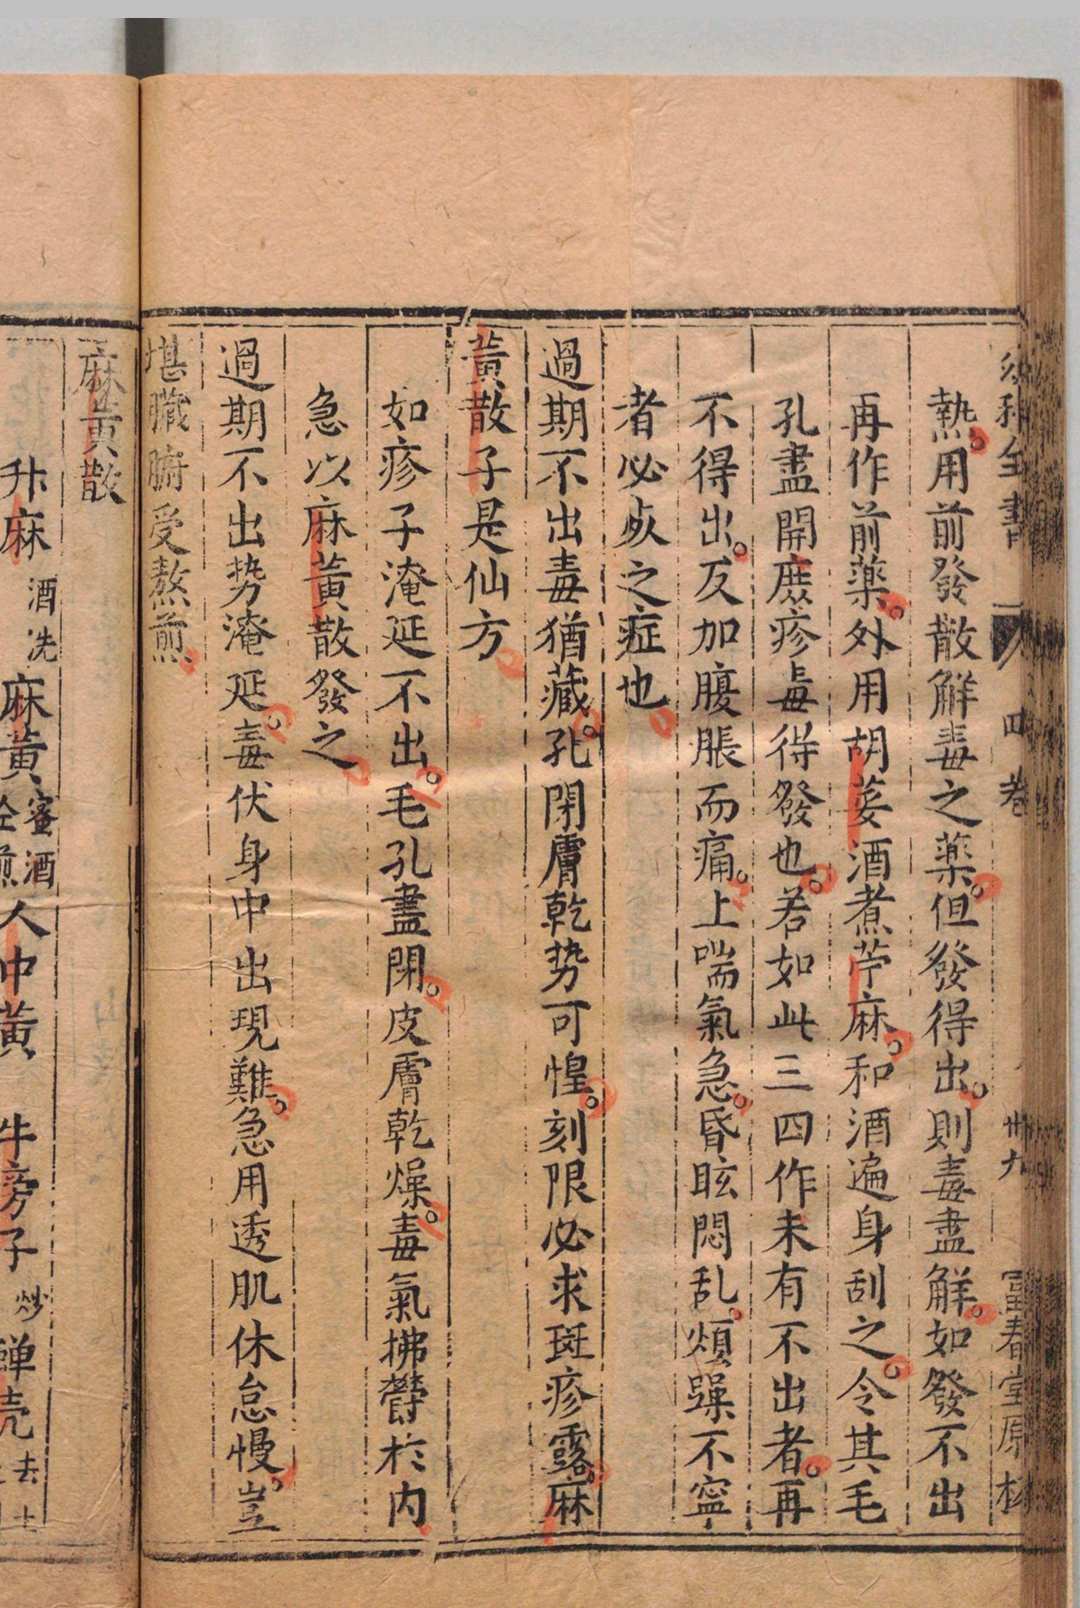 科全書 四卷 卅九 富春堂原板
熱。用前發散解毒之藥。但發得出。則毒盡解。如發不出
再作前藥。外用胡荽酒煮苧麻。和酒遍身刮之。令其毛
孔盡開庶疹毒得發也。若如此三四作未有不出者。再
不得出。反加腹脹而痛。上喘氣急。昏眩悶乱。煩躁不寧
者必死之症也
過期不出毒猶藏。孔閉膚乾势可惶。刻限必求斑疹露。麻
黃散子是仙方
如疹子淹延不出。毛孔盡閉。皮膚乾燥。毒氣拂欝於内
急以麻黃散發之
過期不出势淹延。毒伏身中出現難。急用透肌休怠慢。豈
堪臟腑受熬煎
麻黃散
升麻酒洗 麻黃蜜酒仝煎 人中黃 牛旁子炒 蟬壳去土